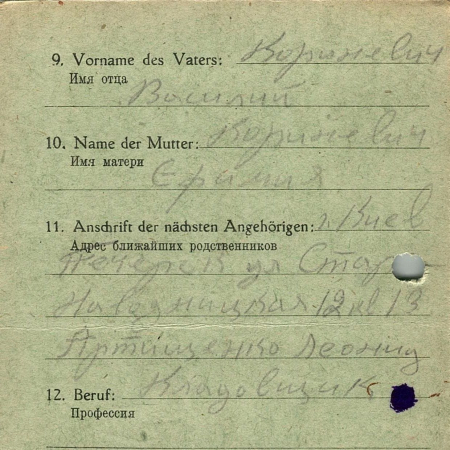 9. Vorname des Vaters: Кориневич
Имя отца
Василий
10. Name der Mutter: Кориневич
Имя матери
Ефимия
11. Anschrift der nächsten Angehörigen: г. Киев
Адрес ближайших родственников
Печерск ул Стар
Наводницкая 12 кв 13
Артищенко Леонид
12. Beruf: Кладовщик
Профессия